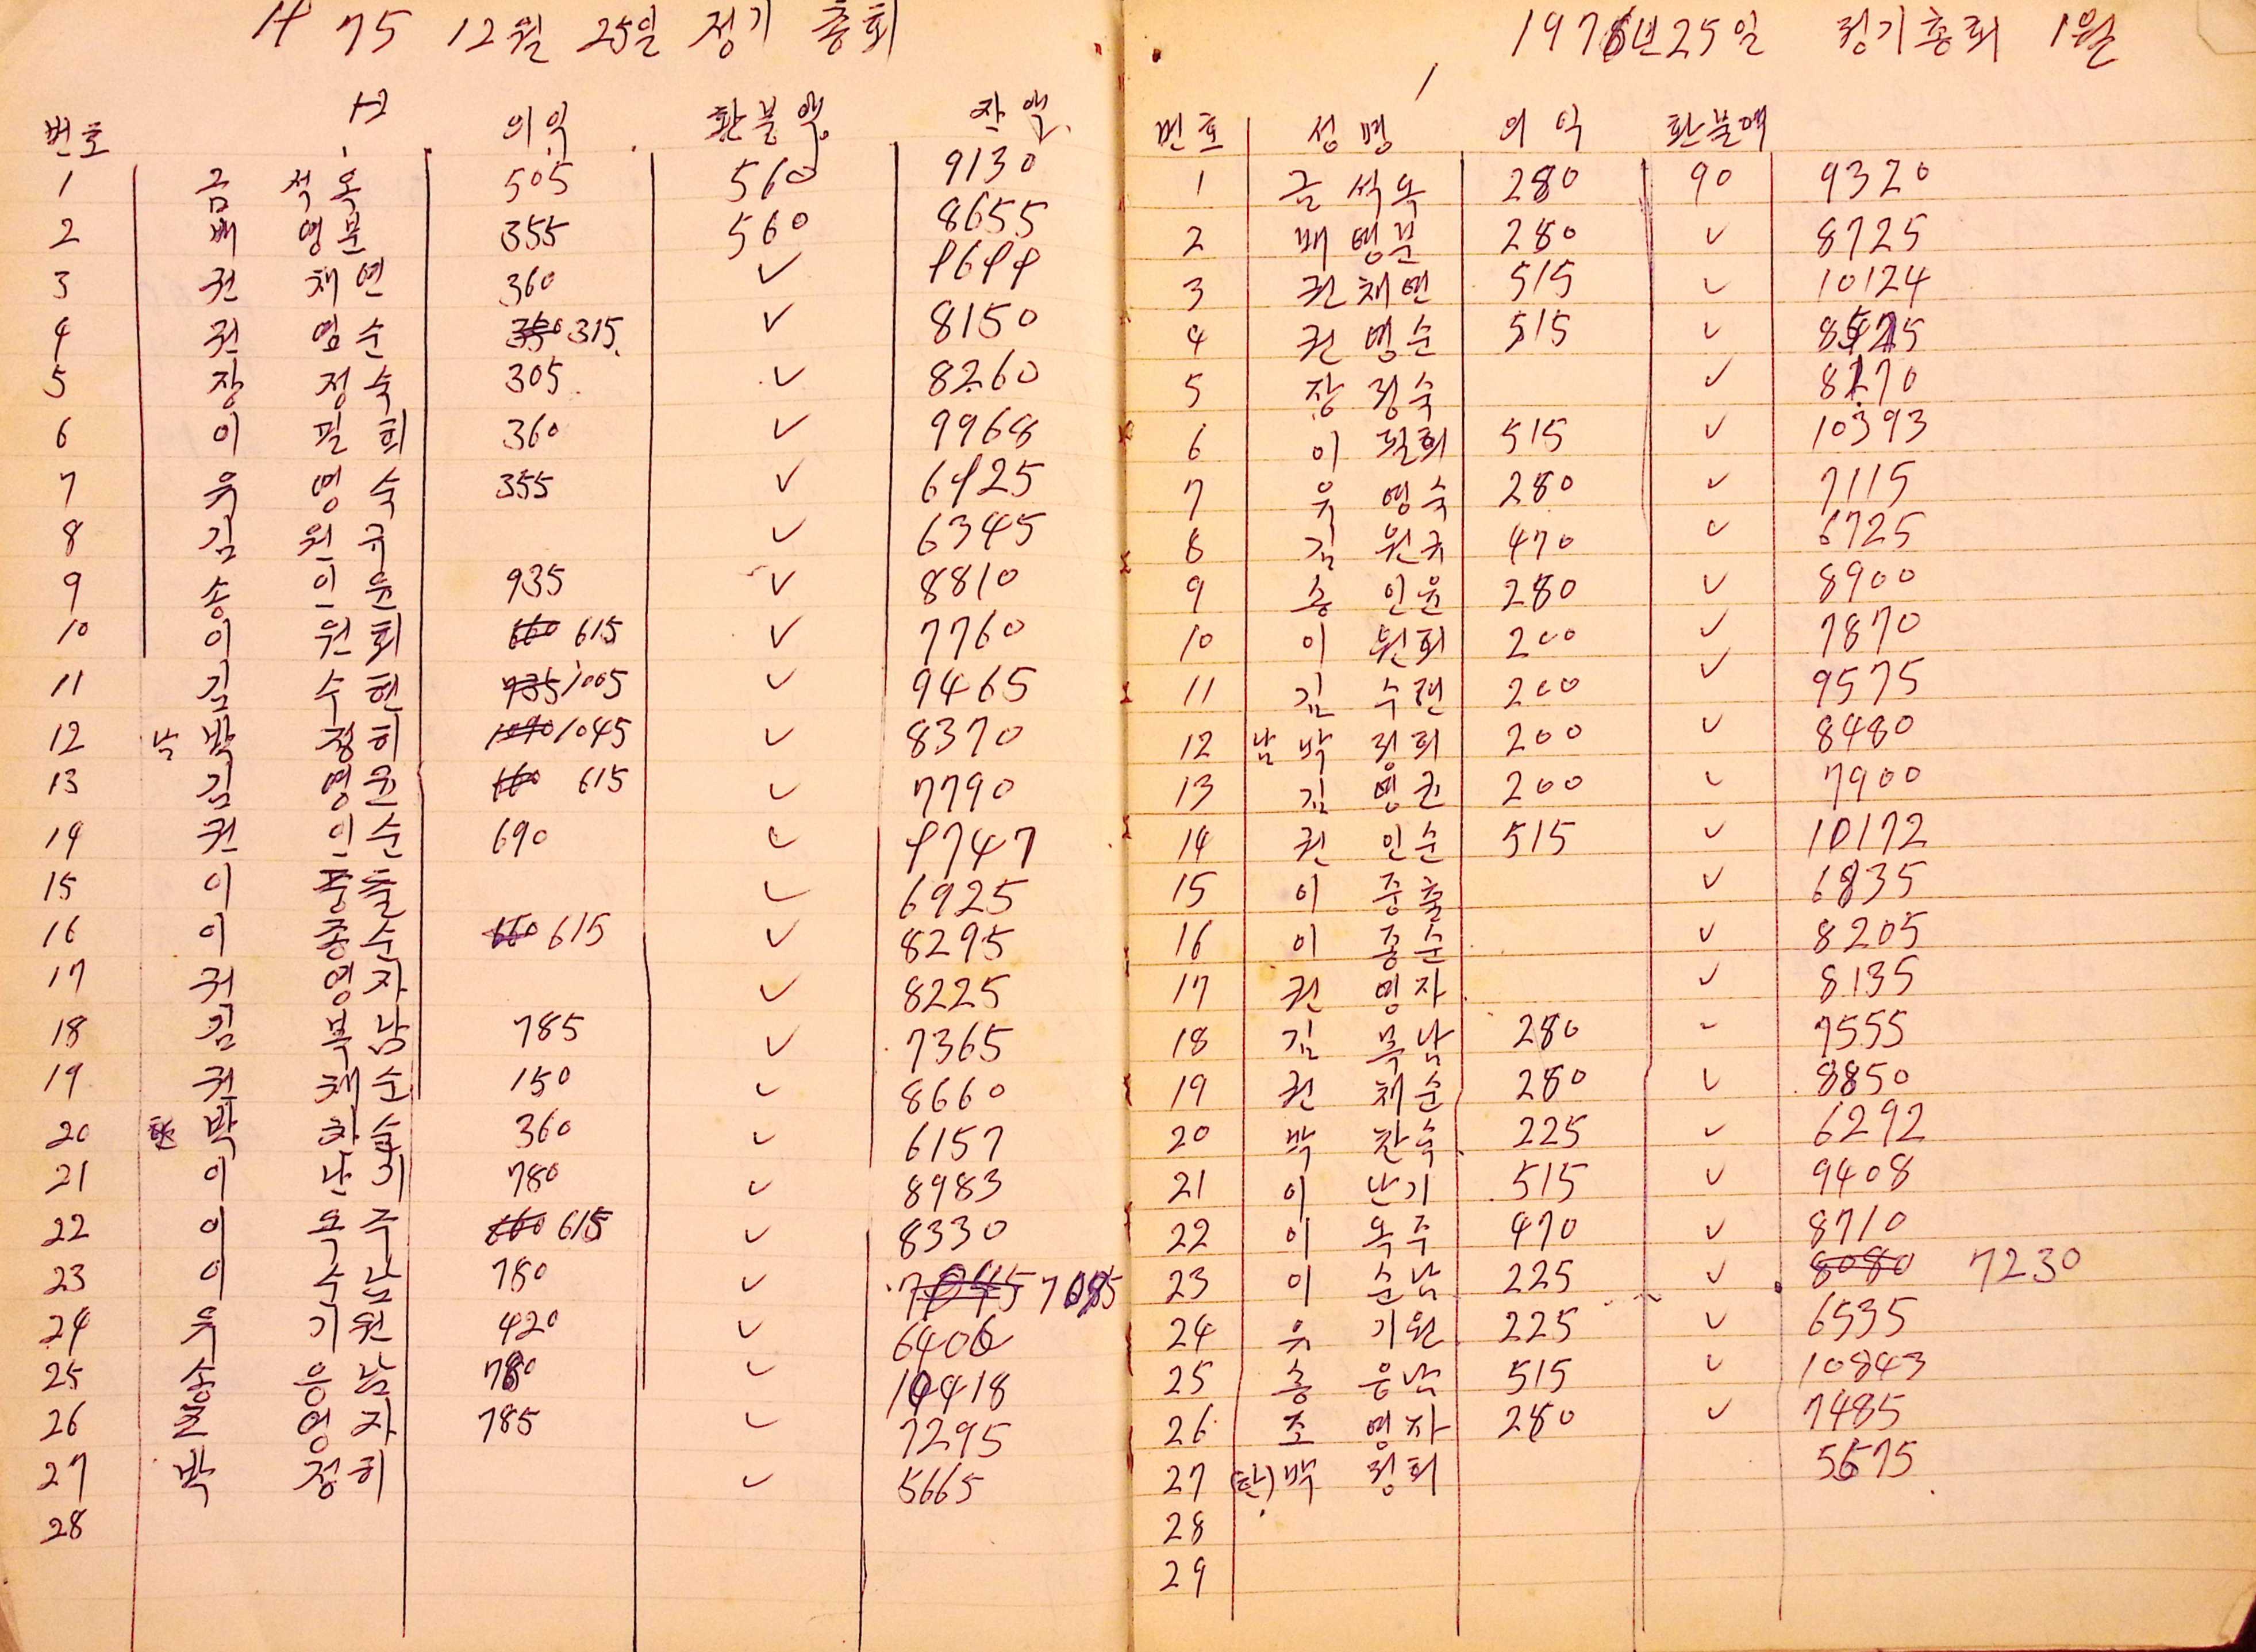 75 12월 25일 정기 총회
번호 의익 환불액 잔액
1 금석옥 505 560 9130
2 배영분 355 560 8655
3 권채연 360 ✓ 9699
4 권영순 350 315 ✓ 8150
5 장정숙 305 ✓ 8260
6 이필희 360 ✓ 9968
7 유영숙 355 ✓ 6925
8 김원규 ✓ 6345
9 송인윤 935 ✓ 8810
10 이원희 660 615 ✓ 7760
11 김수현 735 1005 ✓ 9465
12 남 박정희 1090 1045 ✓ 8370
13 김영군 660 615 ✓ 7790
14 권인순 690 ✓ 9747
15 이중출 ✓ 6925
16 이종순 660 615 ✓ 8295
17 권영자 ✓ 8225
18 김복남 785 ✓ 7365
19 권채순 150 ✓ 8660
20 박찬숙 360 ✓ 6157
21 이난기 780 ✓ 8983
22 이옥주 660 615 ✓ 8330
23 이순남 780 ✓ 7085
24 유기원 420 ✓ 6400
25 송응남 780 ✓ 10418
26 조영자 785 ✓ 7295
27 박정희 ✓ 5665
28
1976년 25일 정기총회 1월
번호 성명 의익 환불액
1 금석옥 280 90 9320
2 배영분 280 ✓ 8725
3 권채연 515 ✓ 10124
4 권영순 515 ✓ 8575
5 장정숙 ✓ 8170
6 이필희 515 ✓ 10393
7 유영숙 280 ✓ 7115
8 김원규 470 ✓ 6725
9 송인윤 280 ✓ 8900
10 이원희 200 ✓ 7870
11 김수현 200 ✓ 9575
12 남 박정희 200 ✓ 8480
13 김영군 200 ✓ 7900
14 권인순 515 ✓ 10172
15 이중출 ✓ 6835
16 이종순 ✓ 8205
17 권영자 ✓ 8135
18 김복남 280 ✓ 7555
19 권채순 280 ✓ 8850
20 박찬숙 225 ✓ 6292
21 이난기 515 ✓ 9408
22 이옥주 470 ✓ 8710
23 이순남 225 ✓ 8080 7230
24 유기원 225 ✓ 6535
25 송응남 515 ✓ 10843
26 조영자 280 ✓ 7485
27 (한) 박정희 5575
28
29